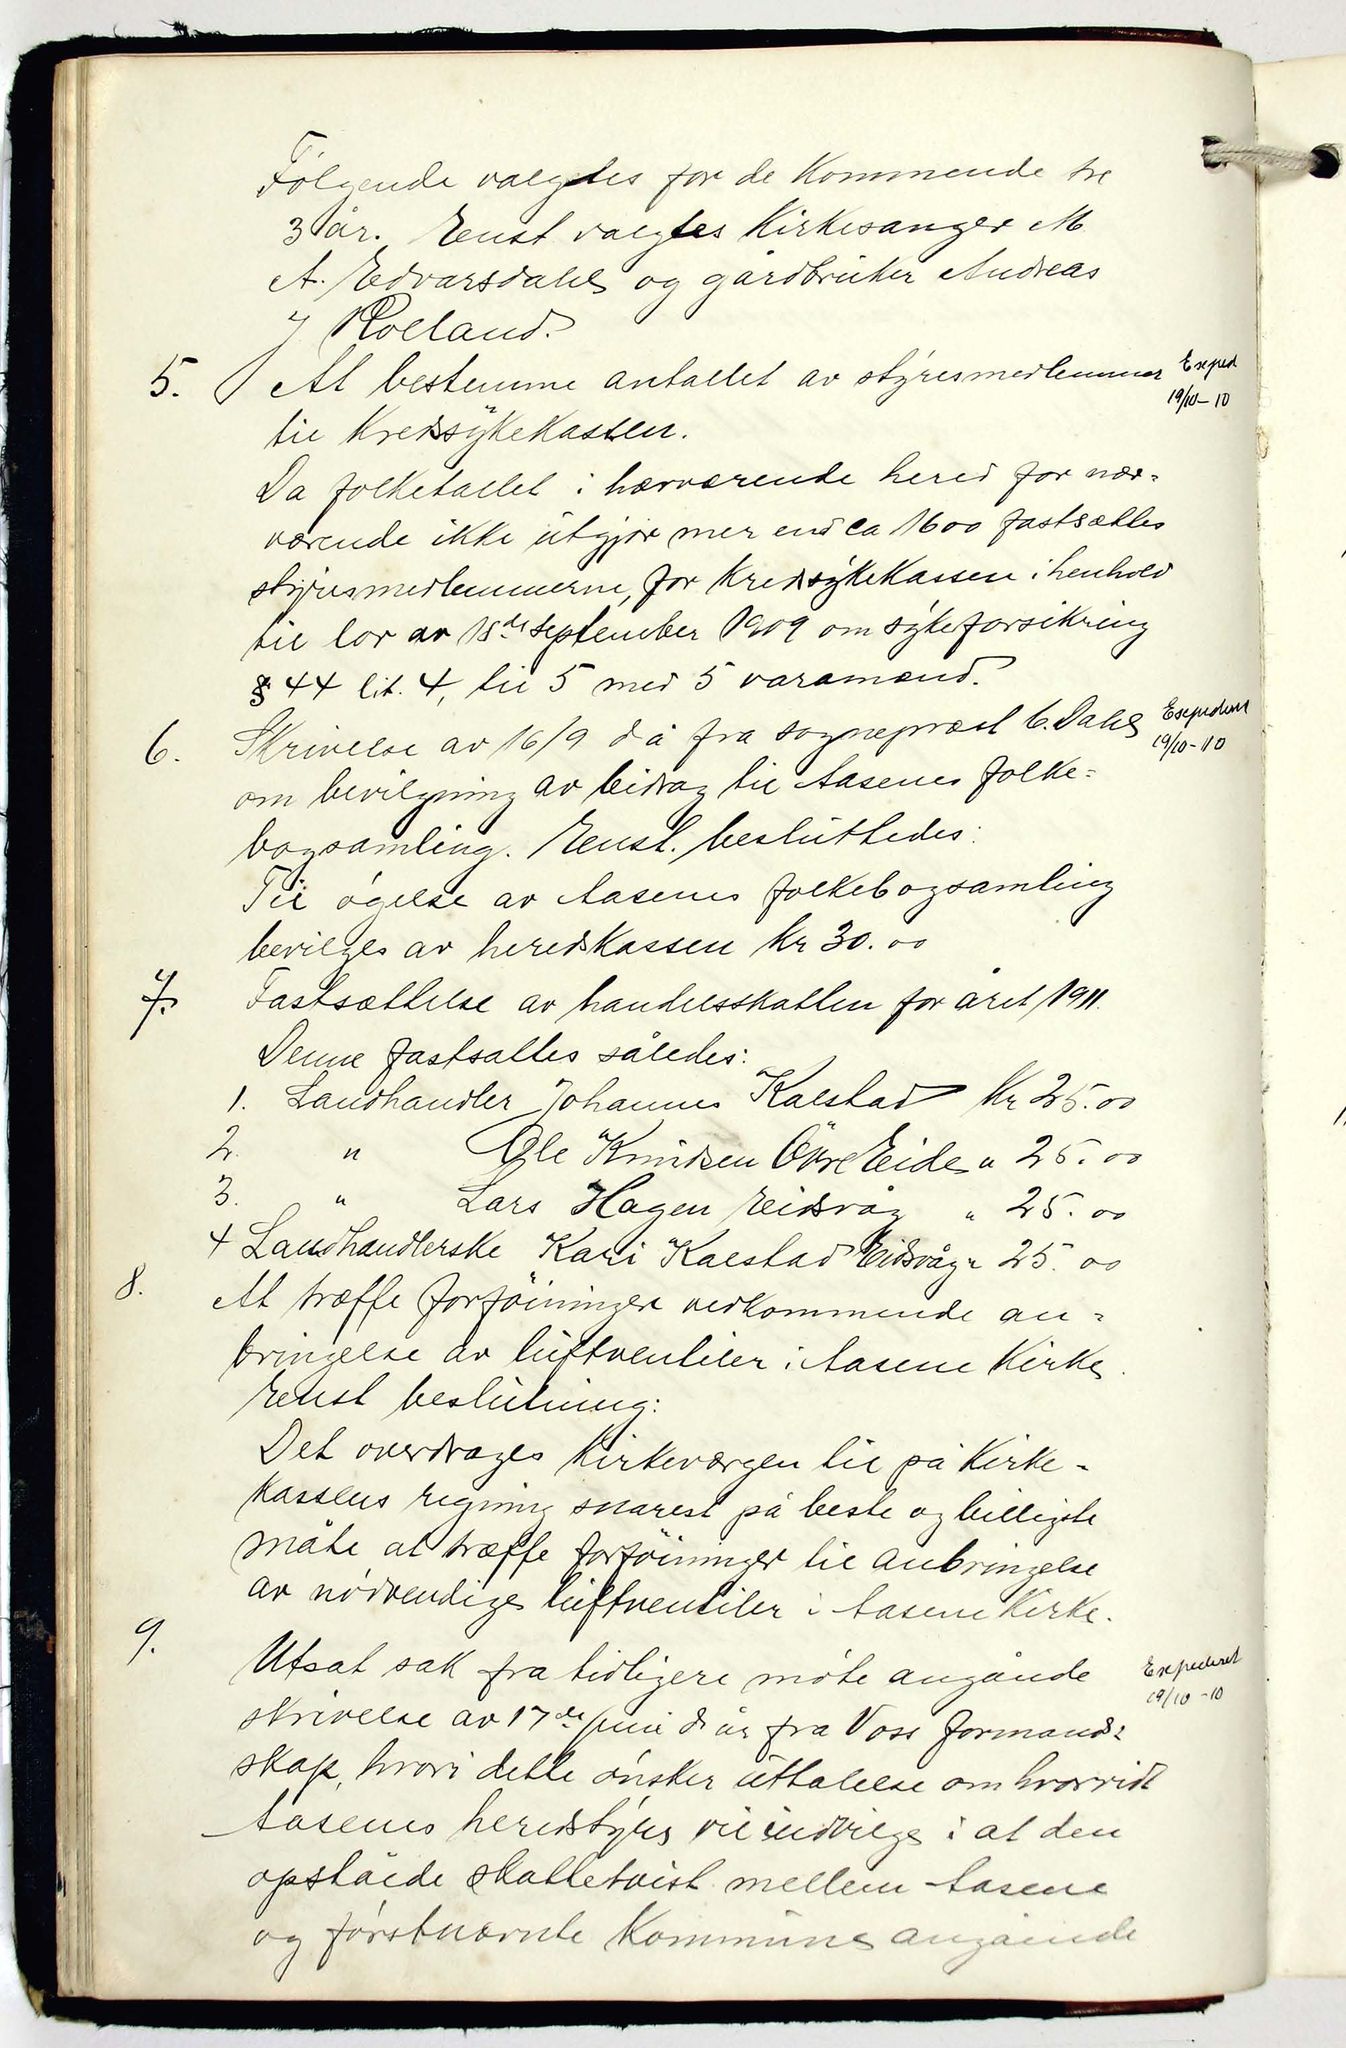 Følgende valgtes for de kommende tre
3 år. Enst valgtes Kirkesanger M
A. Edvarsdahl og gårdbruker Andreas
J Rolland.
5. At bestemme antallet av styresmedlemmer Exped
19/10-10
til Kredssykekassen.
Da folketallet i hærværende hered for nær=
værende ikke utgjør mer end ca 1600 fastsættes
styresmedlemmerne, for Kredssykekassen i henhold
til lov av 18de september 1909 om sykeforsikring
§ 44 lit. 4, til 5 med 5 varamænd.
6. Skrivelse av 16/9 d å fra sogneprest C. Dahl Expederet
19/10-10
om bevilgning av bidrag til Aasenes folke=
bogsamling. Enst. besluttedes:
Til øgelse av Aasenes folkebogsamling
bevilges av heredskassen Kr 30.00
7. Fastsættelse av handelsskatten for året 1911.
Denne fastsattes således:
1. Landhandler Johannes Kalstad Kr 25.00
2. " Ole Knudsen Øvre Eide " 25.00
3. " Lars Hagen Eidsvåg " 25.00
4 Landhandlerske Kari Kalstad Eidsvåg " 25.00
8. At træffe forføininger vedkommende an=
bringelse av luftventiler i Aasene Kirke.
Enst beslutning:
Det overdrages Kirkeværgen til på Kirke-
kassens regning snarest på beste og billigste
måte at træffe forføininger til anbringelse
av nødvendige luftventiler i Aasene Kirke.
9. Utsat sak fra tidligere møte angående Expederet
19/10-10
skrivelse av 17de juni d år fra Voss formand=
skap, hvori dette ønsker uttalelse om hvorvidt
Aasenes heredstyre vil indvilge i at den
opståede skattetvist mellem Aasene
og førstnævnte Kommune angående